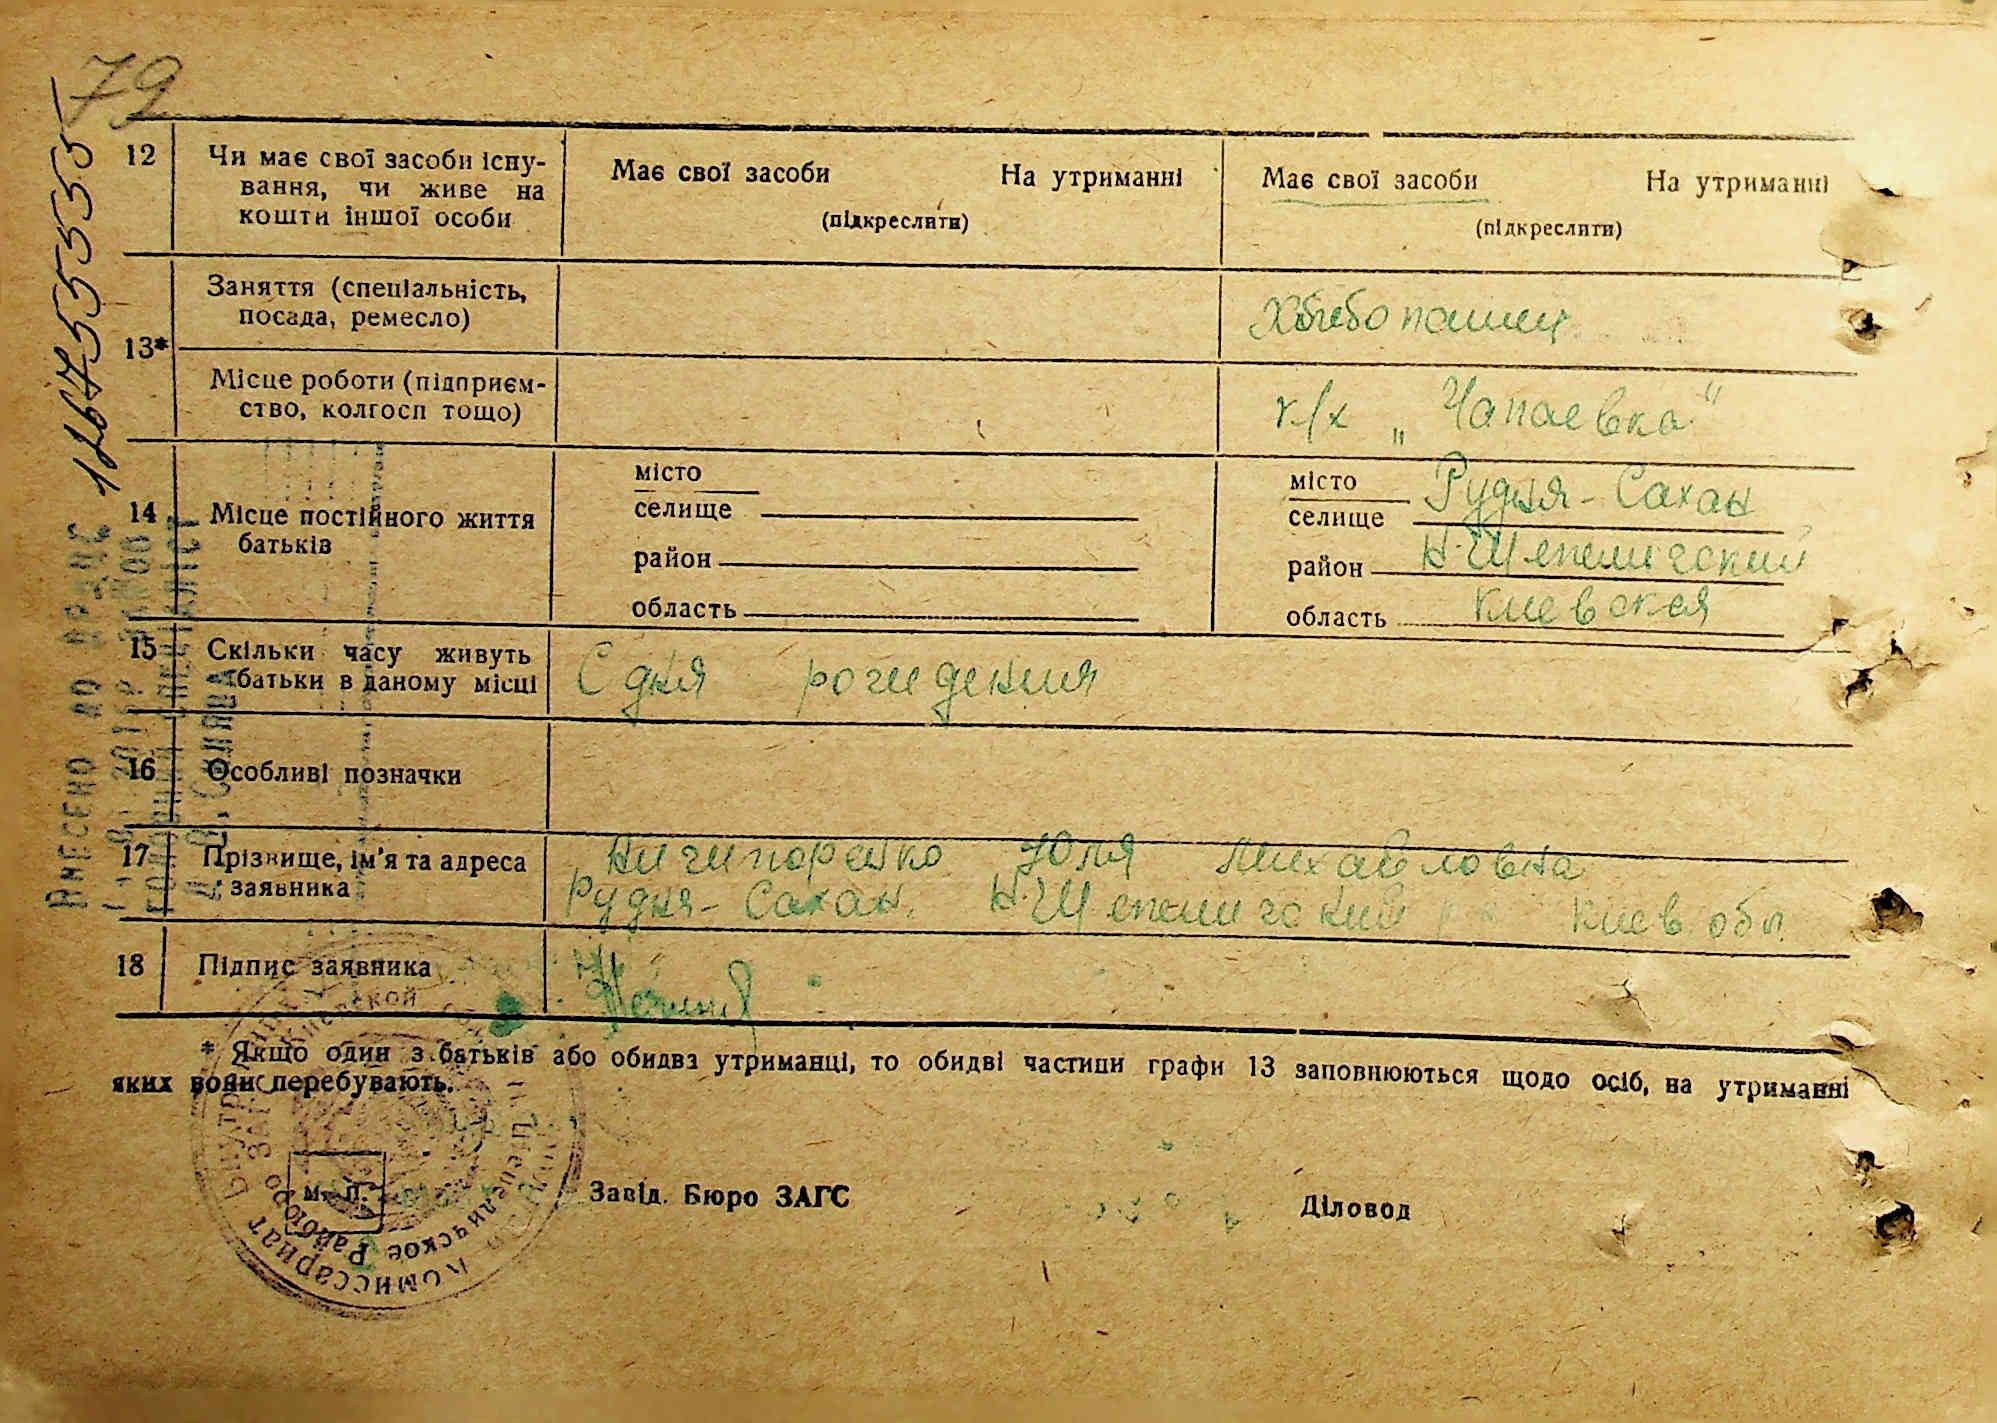 79
12675555555
12 Чи має свої засоби існу-
вання, чи живе на
кошти іншої особи
Має свої засоби На утриманні
(підкреслити)
Має свої засоби На утриманні
(підкреслити)
13*
Заняття (спеціальність,
посада, ремесло)
Хлібопашец
Місце роботи (підприєм-
ство, колгосп тощо)
к/х „Чапаевка"
14 Місце постійного життя
батьків
місто
селище
район
область
місто
селище Рудня-Сахан
район Н-Шепеличский
область Киевская
15 Скільки часу живуть
батьки в даному місці
С дня рождения
16 Особливі позначки
17 Прізвище, ім'я та адреса
заявника
Ничипоренко Юля Михайловна
Рудня-Сахан. Н-Шепеличский р-н Киев. обл.
18 Підпис заявника
* Якщо один з батьків або обидва утриманці, то обидві частини графи 13 заповнюються щодо осіб, на утриманні
яких вони перебувають.
м. п.
Завід. Бюро ЗАГС
Діловод
Внесено до
Комиссариат Внутр
Шепеличское Райбюро ЗАГС